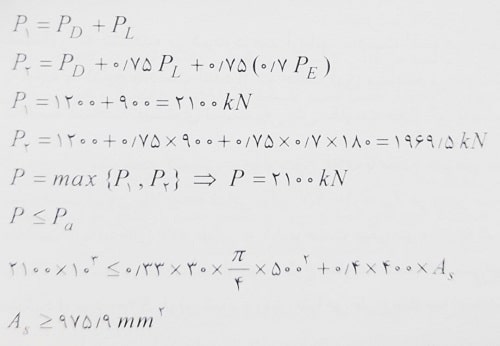 P₁ = P_D + P_L
P₂ = P_D + ۰/۷۵ P_L + ۰/۷۵ (۰/۷ P_E)
P₁ = ۱۲۰۰ + ۹۰۰ = ۲۱۰۰ kN
P₂ = ۱۲۰۰ + ۰/۷۵ × ۹۰۰ + ۰/۷۵ × ۰/۷ × ۱۸۰ = ۱۹۶۹/۵ kN
P = max {P₁ , P₂} ⇒ P = ۲۱۰۰ kN
P ≤ P_a
۲۱۰۰ × ۱۰^۳ ≤ ۰/۳۳ × ۳۰ × π/۴ × ۵۰۰^۲ + ۰/۴ × ۴۰۰ × A_s
A_s ≥ ۹۷۵/۹ mm^۲